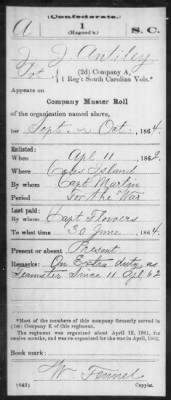 (Confederate.)
A 1 S. C.
(Hagood's)
J. J. Antiley
Pvt., (2d) Company A,
1 Reg't South Carolina Vols.*
Appears on
Company Muster Roll
of the organization named above,
for Sept & Oct, 1864.
Enlisted:
When Apl 11, 1862.
Where Coles Island
By whom Capt Martin
Period For the War
Last paid:
By whom Capt Flowers
To what time 30 June, 1864.
Present or absent Present
Remarks: On Extra duty as
Teamster Since 11 Apl 62
*Most of the members of this company formerly served in
(1st) Company K of this regiment.
The regiment was organized about April 12, 1861, for
twelve months, and was re-organized for the war in April, 1862.
Book mark:
W. Fennel
(642) Copyist.